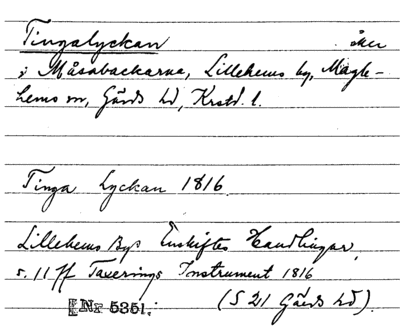 Tingalyckan åker
i Måsabackarna, Lillehems by, Magle-
hems sn, Gärds hd, Krstd. l.
Tinga lyckan 1816
Lillehems Bys Enskiftes Handlingar,
s. 11 ff Taxerings Instrument 1816
ENr 5351. (S 21 Gärds hd)